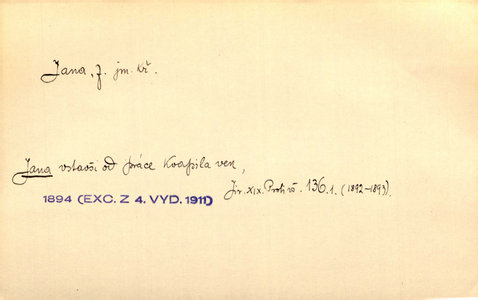 Jana, f. jm. kř.
Jana vstavši od práce kvapila ven,
Jir. XIX. Proti vš. 136.1. (1892–1893).
1894 (EXC. Z 4. VYD. 1911)